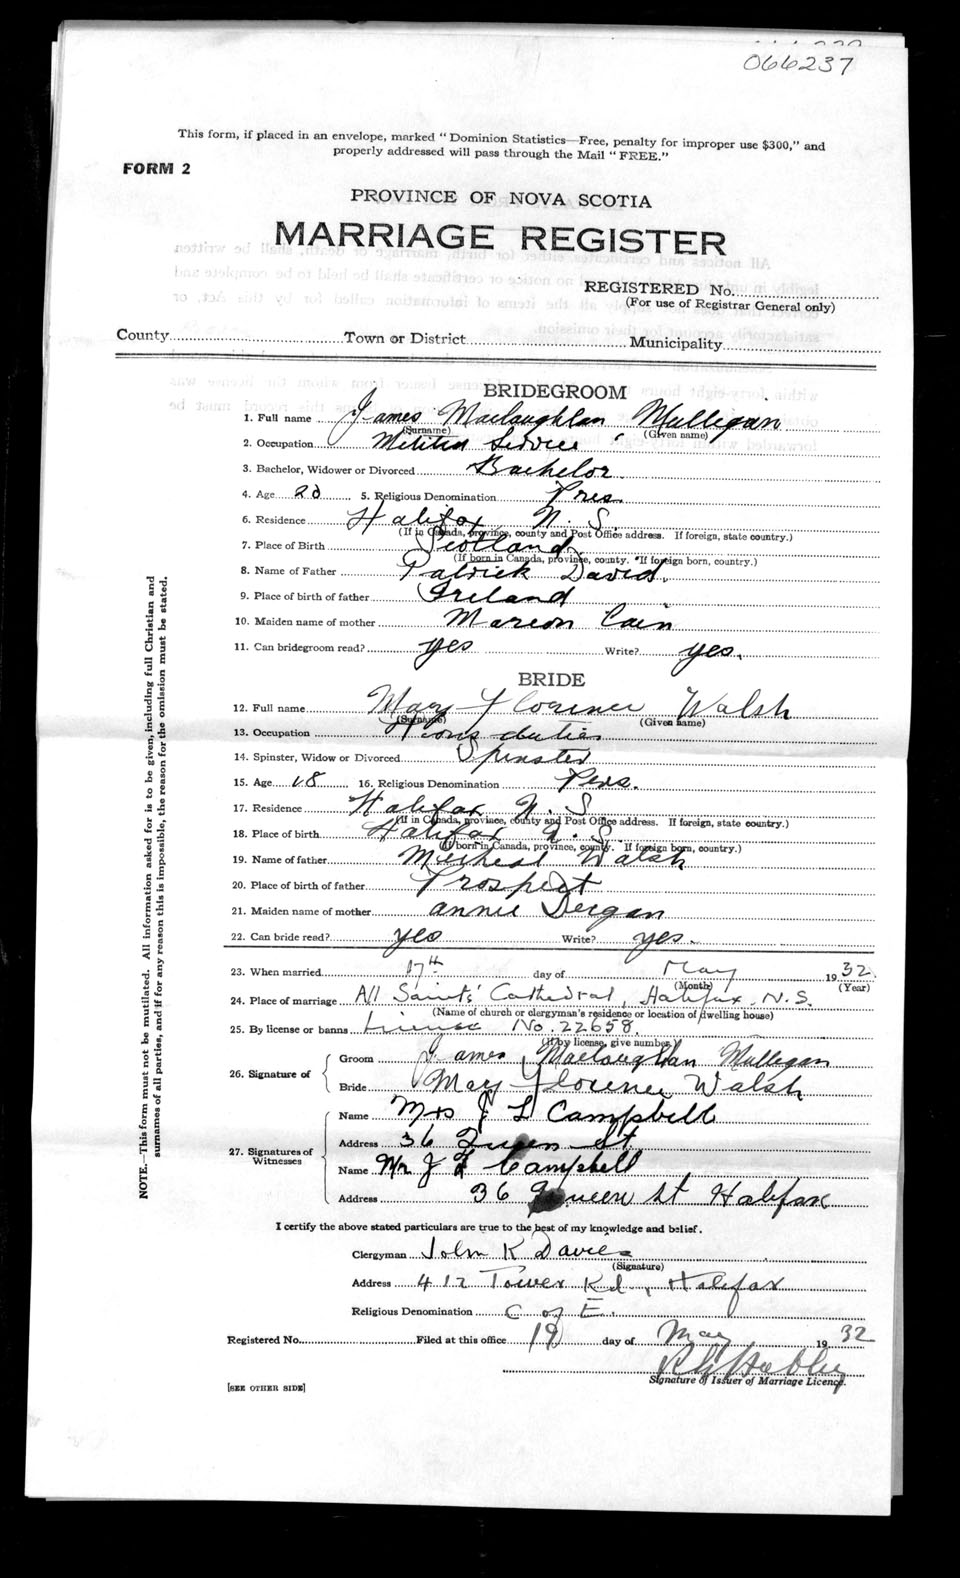 066237
This form, if placed in an envelope, marked "Dominion Statistics—Free, penalty for improper use $300," and
properly addressed will pass through the Mail "FREE."
FORM 2
PROVINCE OF NOVA SCOTIA
MARRIAGE REGISTER
REGISTERED No.
(For use of Registrar General only)
County Town or District Municipality
BRIDEGROOM
1. Full name James Maclaughlan Mulligan
(Surname) (Given name)
2. Occupation Militia Service
3. Bachelor, Widower or Divorced Bachelor
4. Age 5. Religious Denomination Pres.
6. Residence Halifax N. S.
(If in Canada, province, county and Post Office address. If foreign, state country.)
7. Place of Birth Scotland
(If born in Canada, province, county. If foreign born, country.)
8. Name of Father Patrick David.
9. Place of birth of father Ireland
10. Maiden name of mother Marion Cain
11. Can bridegroom read? yes Write? yes.
BRIDE
12. Full name Mary Florence Walsh
(Surname) (Given name)
13. Occupation Home duties
14. Spinster, Widow or Divorced Spinster
15. Age 18 16. Religious Denomination Pres.
17. Residence Halifax N. S
(If in Canada, province, county and Post Office address. If foreign, state country.)
18. Place of birth Halifax N. S.
(If born in Canada, province, county. If foreign born, country.)
19. Name of father Micheal Walsh
20. Place of birth of father Prospect
21. Maiden name of mother annie Deegan
22. Can bride read? yes Write? yes.
23. When married 17th day of May 1932.
(Month) (Year)
24. Place of marriage All Saints' Cathedral, Halifax, N.S.
(Name of church or clergyman's residence or location of dwelling house)
25. By license or banns License No. 22658.
(If by license, give number.)
26. Signature of
Groom James Maclaughlan Mulligan
Bride Mary Florence Walsh
27. Signatures of Witnesses
Name Mrs J L Campbell
Address 36 Queen St.
Name Mr J L Campbell
Address 36 Queen St Halifax
I certify the above stated particulars are true to the best of my knowledge and belief.
Clergyman John K Davies
(Signature)
Address 412 Tower Rd, Halifax
Religious Denomination C of E.
Registered No. Filed at this office 19 day of May 1932
Signature of Issuer of Marriage Licence.
[SEE OTHER SIDE]
NOTE.—This form must not be mutilated. All information asked for is to be given, including full Christian and
surnames of all parties, and if for any reason this is impossible, the reason for the omission must be stated.